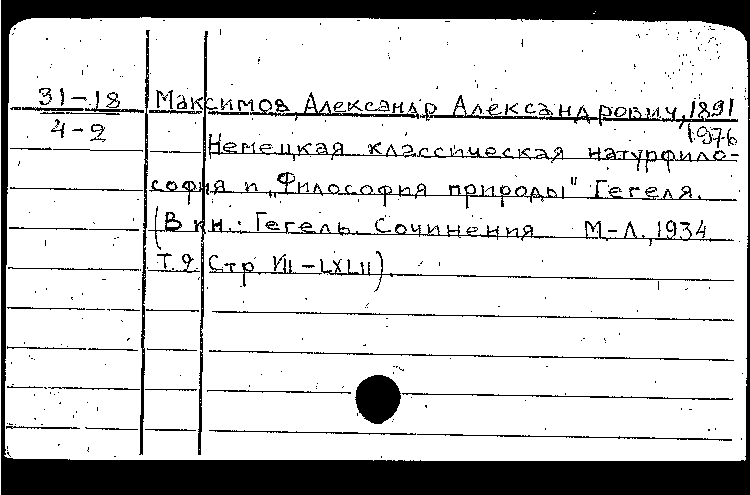 31-18
4-2
Максимов, Александр Александрович, 1891
1976
Немецкая классическая натурфило-
софия и „Философия природы" Гегеля.
(В кн.: Гегель. Сочинения М-Л., 1934
Т.2 Стр. VII-LXLII).